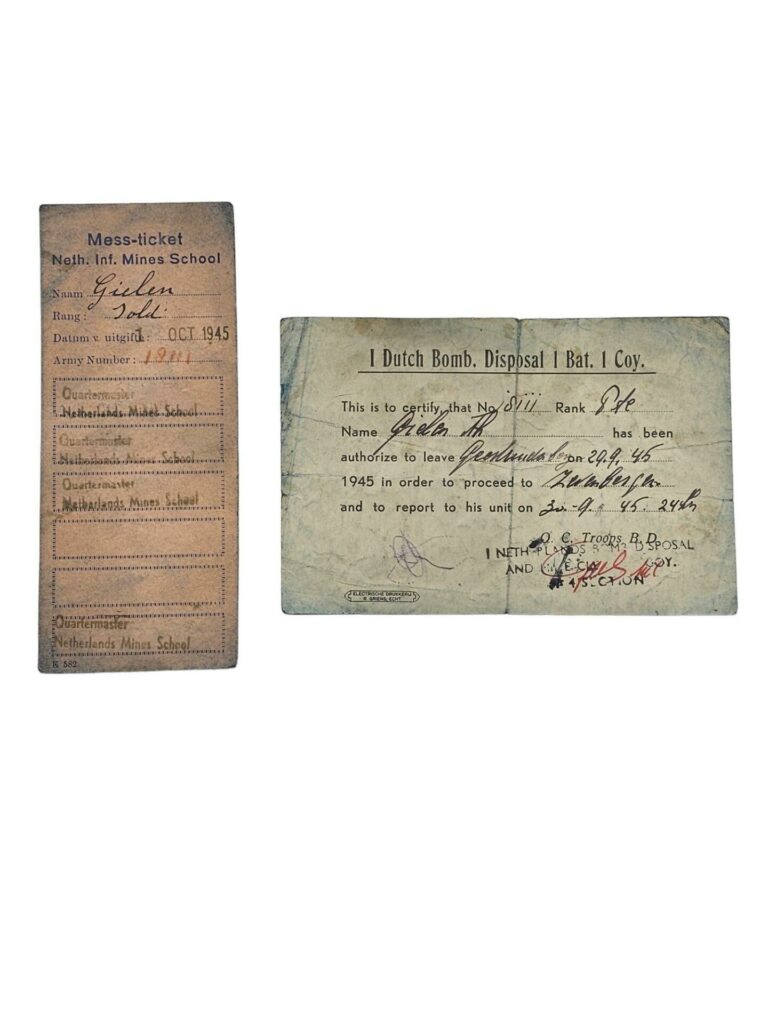 Mess-ticket
Neth. Inf. Mines School
Naam Gielen
Rang: Sold.
Datum v. uitgifte: 1 OCT 1945
Army Number: 18111
Quartermaster
Netherlands Mines School
Quartermaster
Netherlands Mines School
Quartermaster
Netherlands Mines School
Quartermaster
Netherlands Mines School
K 582
1 Dutch Bomb. Disposal 1 Bat. 1 Coy.
This is to certify that No 18111 Rank Pte
Name Gielen Th has been
authorize to leave on 29.9.45
1945 in order to proceed to Zevenbergen
and to report to his unit on 30-9-45. 24
O. C. Troops B.D.
1 NETHERLANDS BOMB DISPOSAL
AND COY.
SECTION
ELECTRISCHE DRUKKERIJ
ECHT